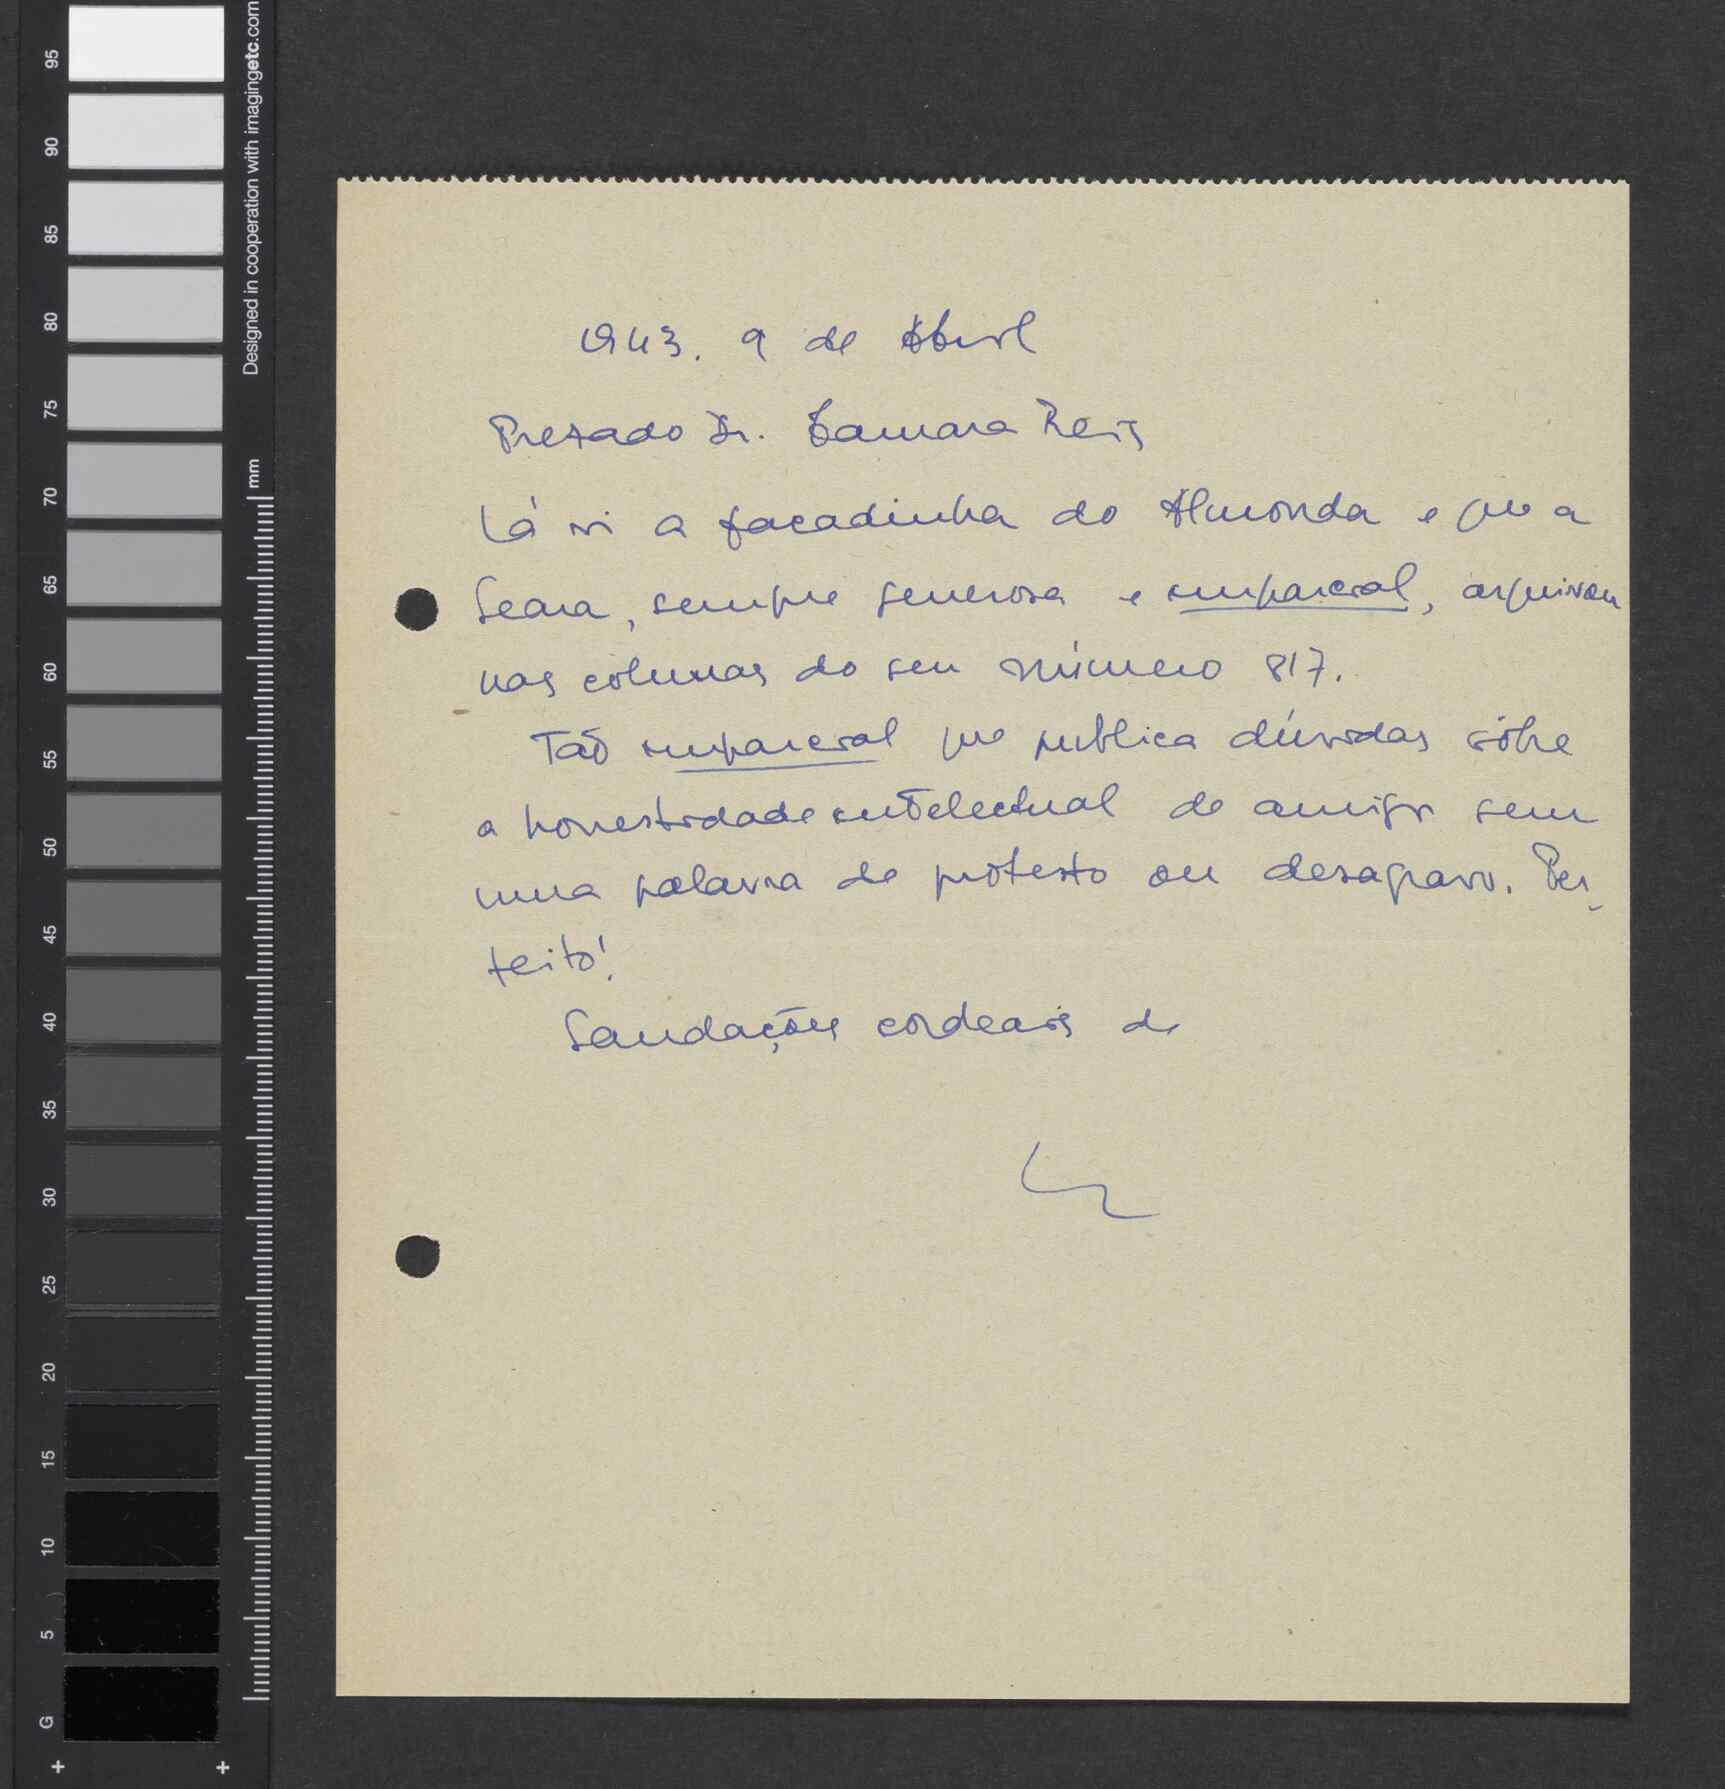 1943. 9 de Abril
Prezado Dr. Camara Reis
Lá vi a facadinha do Almonda e que a
Seara, sempre generosa e imparcial, arquivou
nas colunas do seu número 817.
Tão imparcial que publica dúvidas sôbre
a honestidade intelectual de amigo sem
uma palavra de protesto ou desagravo. Per-
feito!
Saudações cordeais de
Designed in cooperation with imagingetc.com
mm
95
90
85
80
75
70
65
60
55
50
45
40
35
30
25
20
15
10
5
G